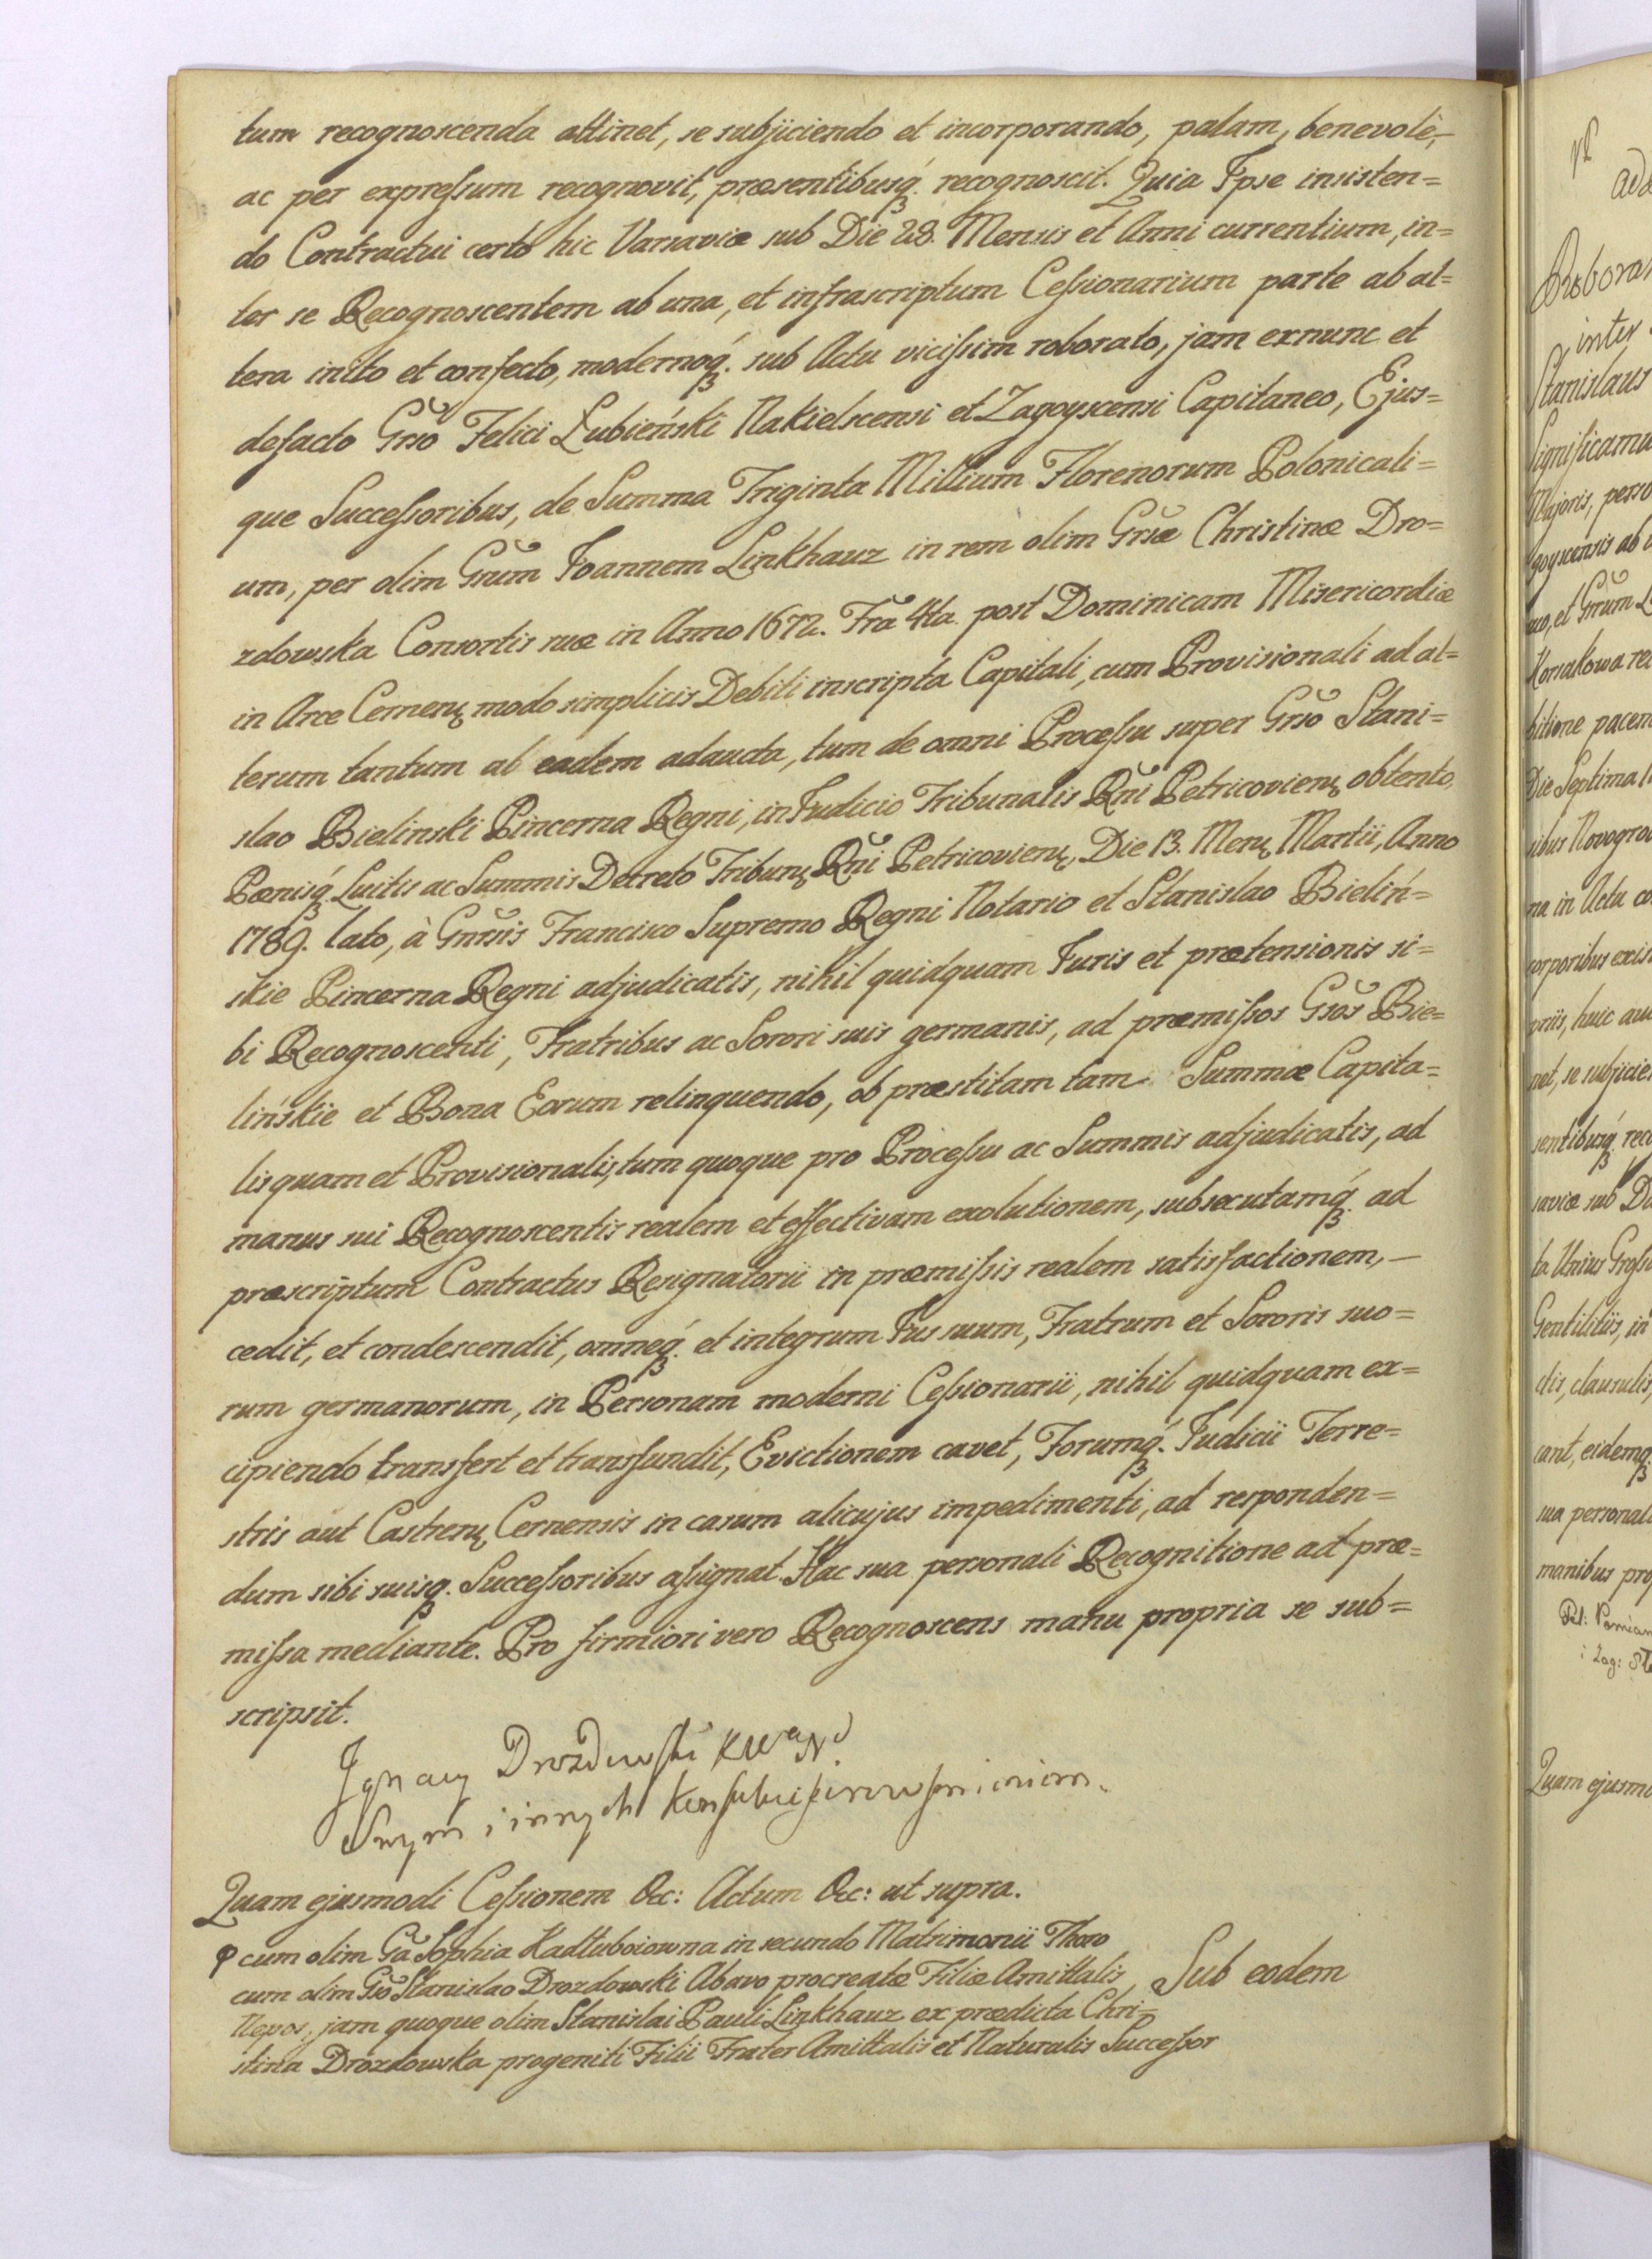 tum recognoscenda attinet, se subjiciendo et incorporando, palam, benevolè,
ac per expreſsum recognovit, præsentibusq́ȝ. recognoscit. Quia Ipse insisten=
do Contractui certo hic Varsaviæ sub Die 28. Mensis et Anni currentium, in=
ter se Recognoscentem ab una, et infrascriptum Ceſsionarium parte ab al=
tera inito et confecto, modernoq́ȝ. sub Actu viciſsim roborato, jam exnunc et
defacto Grso Felici Łubieński Nakielscensi et Zagoyscensi Capitaneo, Ejus=
que Succeſsoribus, de Summa Triginta Millium Florenorum Polonicali=
um, per olim Grum Joannem Linkhauz in rem olim Grsæ Christinæ Dro=
zdowska Consortis suæ in Anno 1672. Fra 4ta post Dominicam Misericordiæ
in Arce Cernenȝ modo simplicis Debiti inscripta Capitali, cum Provisionali ad al=
terum tantum ab eadem adaucta, tum de omni Proceſsu super Grso Stani=
slao Bielinski Pincerna Regni, in Judicio Tribunalis Rni Petricovienȝ obtento,
Pœnisq́ȝ. Luitis ac Summis Decreto Tribunȝ Rni Petricovienȝ, Die 13. Menȝ Martii, Anno
1789. lato, à Gnrsis Francisco Supremo Regni Notario et Stanislao Bieliń=
skie Pincerna Regni adjudicatis, nihil quidquam Juris et prætensionis si=
bi Recognoscenti, Fratribus ac Sorori suis germanis, ad præmiſsos Gsos Bie=
lińskie et Bona Eorum relinquendo, ob præstitam tam Summæ Capita=
lis quam et Provisionalis, tum quoque pro Proceſsu ac Summis adjudicatis, ad
manus sui Recognoscentis realem et effectivam exolutionem, subsecutamq́ȝ. ad
præscriptum Contractus Resignatorii in præmiſsis realem satisfactionem,—
cedit, et condescendit, omneq́ȝ. et integrum Jus suum, Fratrum et Sororis suo=
rum germanorum, in Personam moderni Ceſsionarii, nihil quidquam ex=
cipiendo transfert et transfundit, Evictionem cavet, Forumq́ȝ. Judicii Terre=
stris aut Castrenȝ Cernensis in casum alicujus impedimenti, ad responden=
dum sibi suisqȝ. Succeſsoribus aſsignat. Hac sua personali Recognitione ad præ=
miſsa mediante. Pro firmiori vero Recognoscens manu propria se sub=
scripsit.
Ignacy Drozdowski
Swym i innych
Quam ejusmodi Ceſsionem &c: Actum &c: ut supra.
φ cum olim Ga Sophia Kadłubowowna in secundo Matrimonii Thoro
cum olim Gso Stanislao Drozdowski Abavo procreatæ Filiæ Amittalis
Sub eodem
Nepos, jam quoque olim Stanislai Pauli Linkhauz ex prædicta Chri=
stina Drozdowska progeniti Filii Frater Amittalis et Naturalis Succeſsor